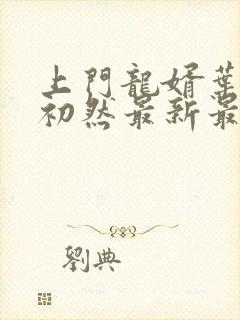 上門龍婿葉
初然最新最
劉典